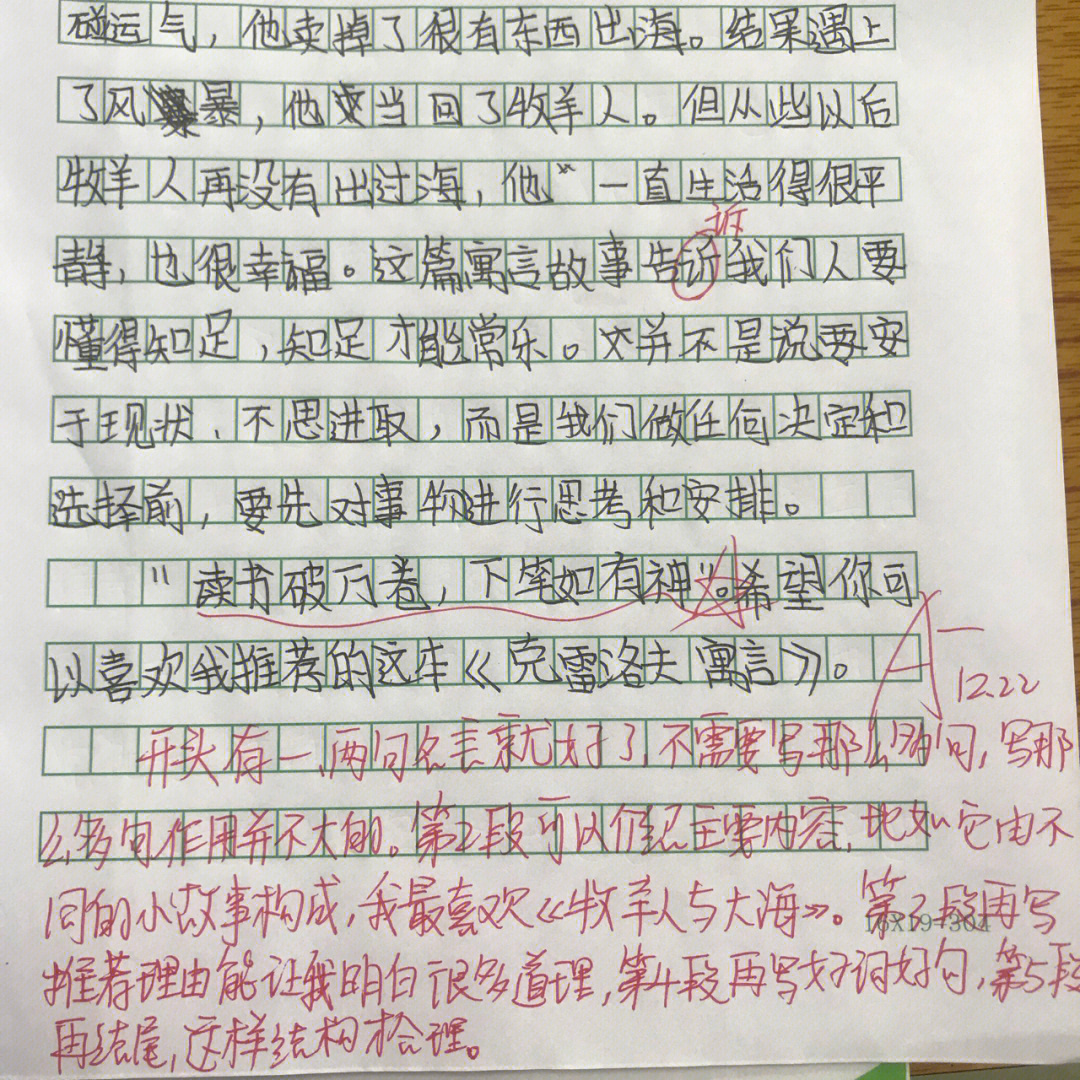 碰运气，他卖掉了很有东西出海。结果遇上
了风暴，他又当回了牧羊人。但从些以后
牧羊人再没有出过海，他一直生活得很平
静，也很幸福。这篇寓言故事告诉我们人要
诉
懂得知足，知足才能常乐。这并不是说要安
于现状、不思进取，而是我们做任何决定和
选择前，要先对事物进行思考和安排。
"读书破万卷，下笔如有神"。希望你可
以喜欢我推荐的这本《克雷洛夫寓言》。
A-
12.22
开头有一、两句名言就好了，不需要写那么多句，写那
么多句作用并不大的。第2段可以介绍主要内容，比如它由不
同的小故事构成，我最喜欢《牧羊人与大海》。第3段再写
16X19=304
推荐理由能让我明白很多道理，第4段再写好词好句，第5段
再结尾，这样结构才合理。